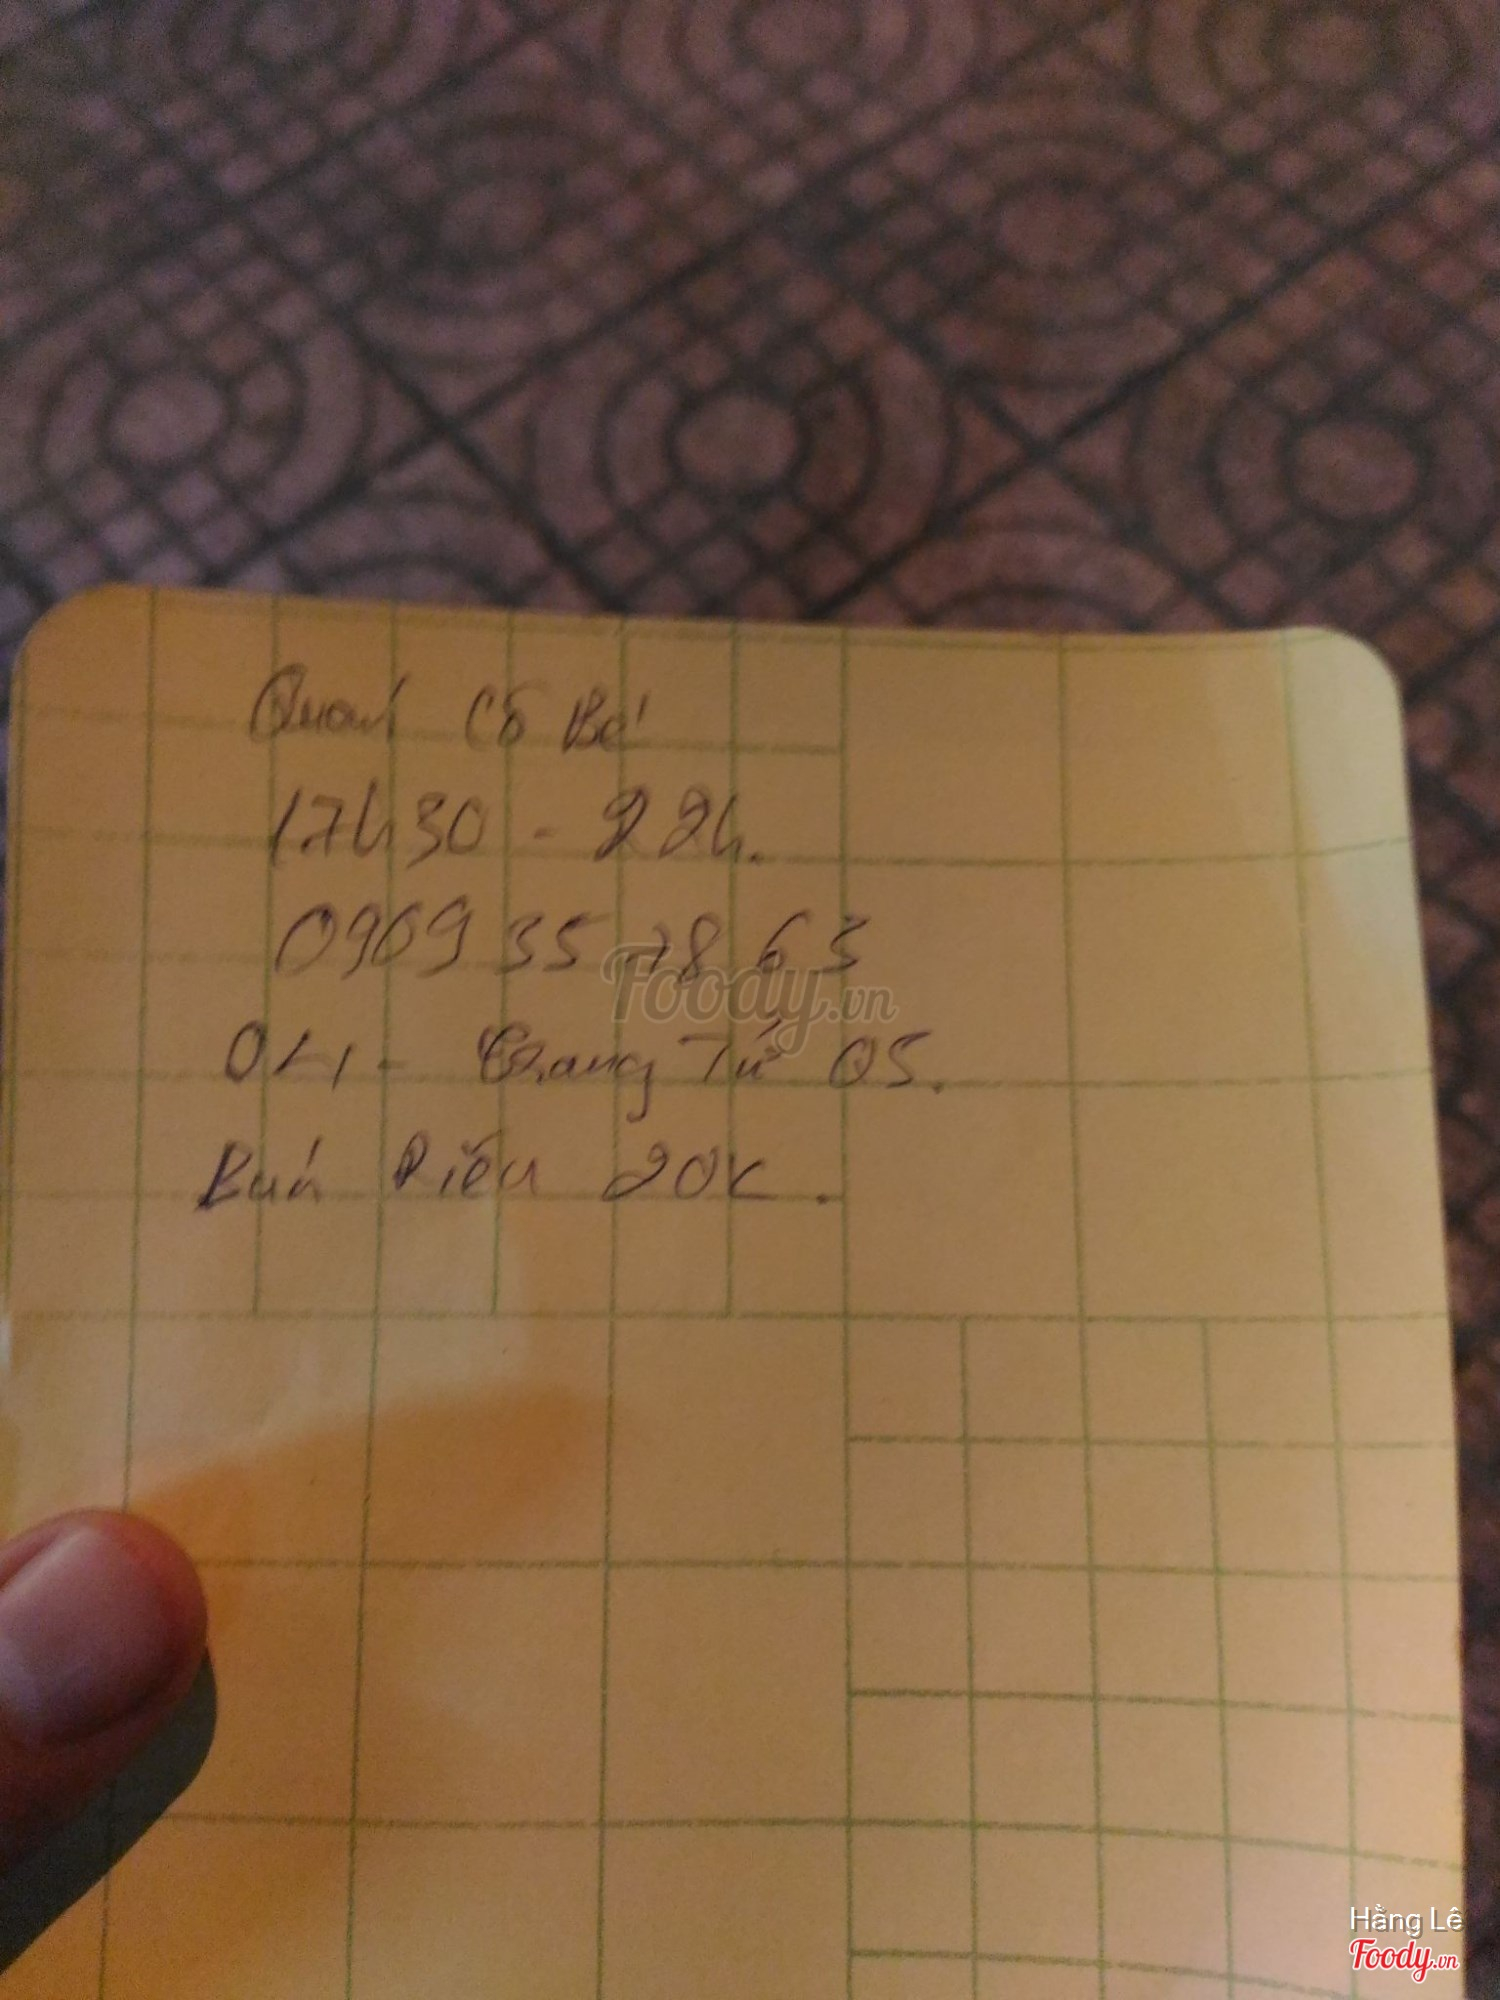 Quán Cô Ba
17h30 - 22h.
0909 35 78 63
Trang Tử Q5.
Bún Riêu 20K.
Foody.vn
Hằng Lê
Foody.vn